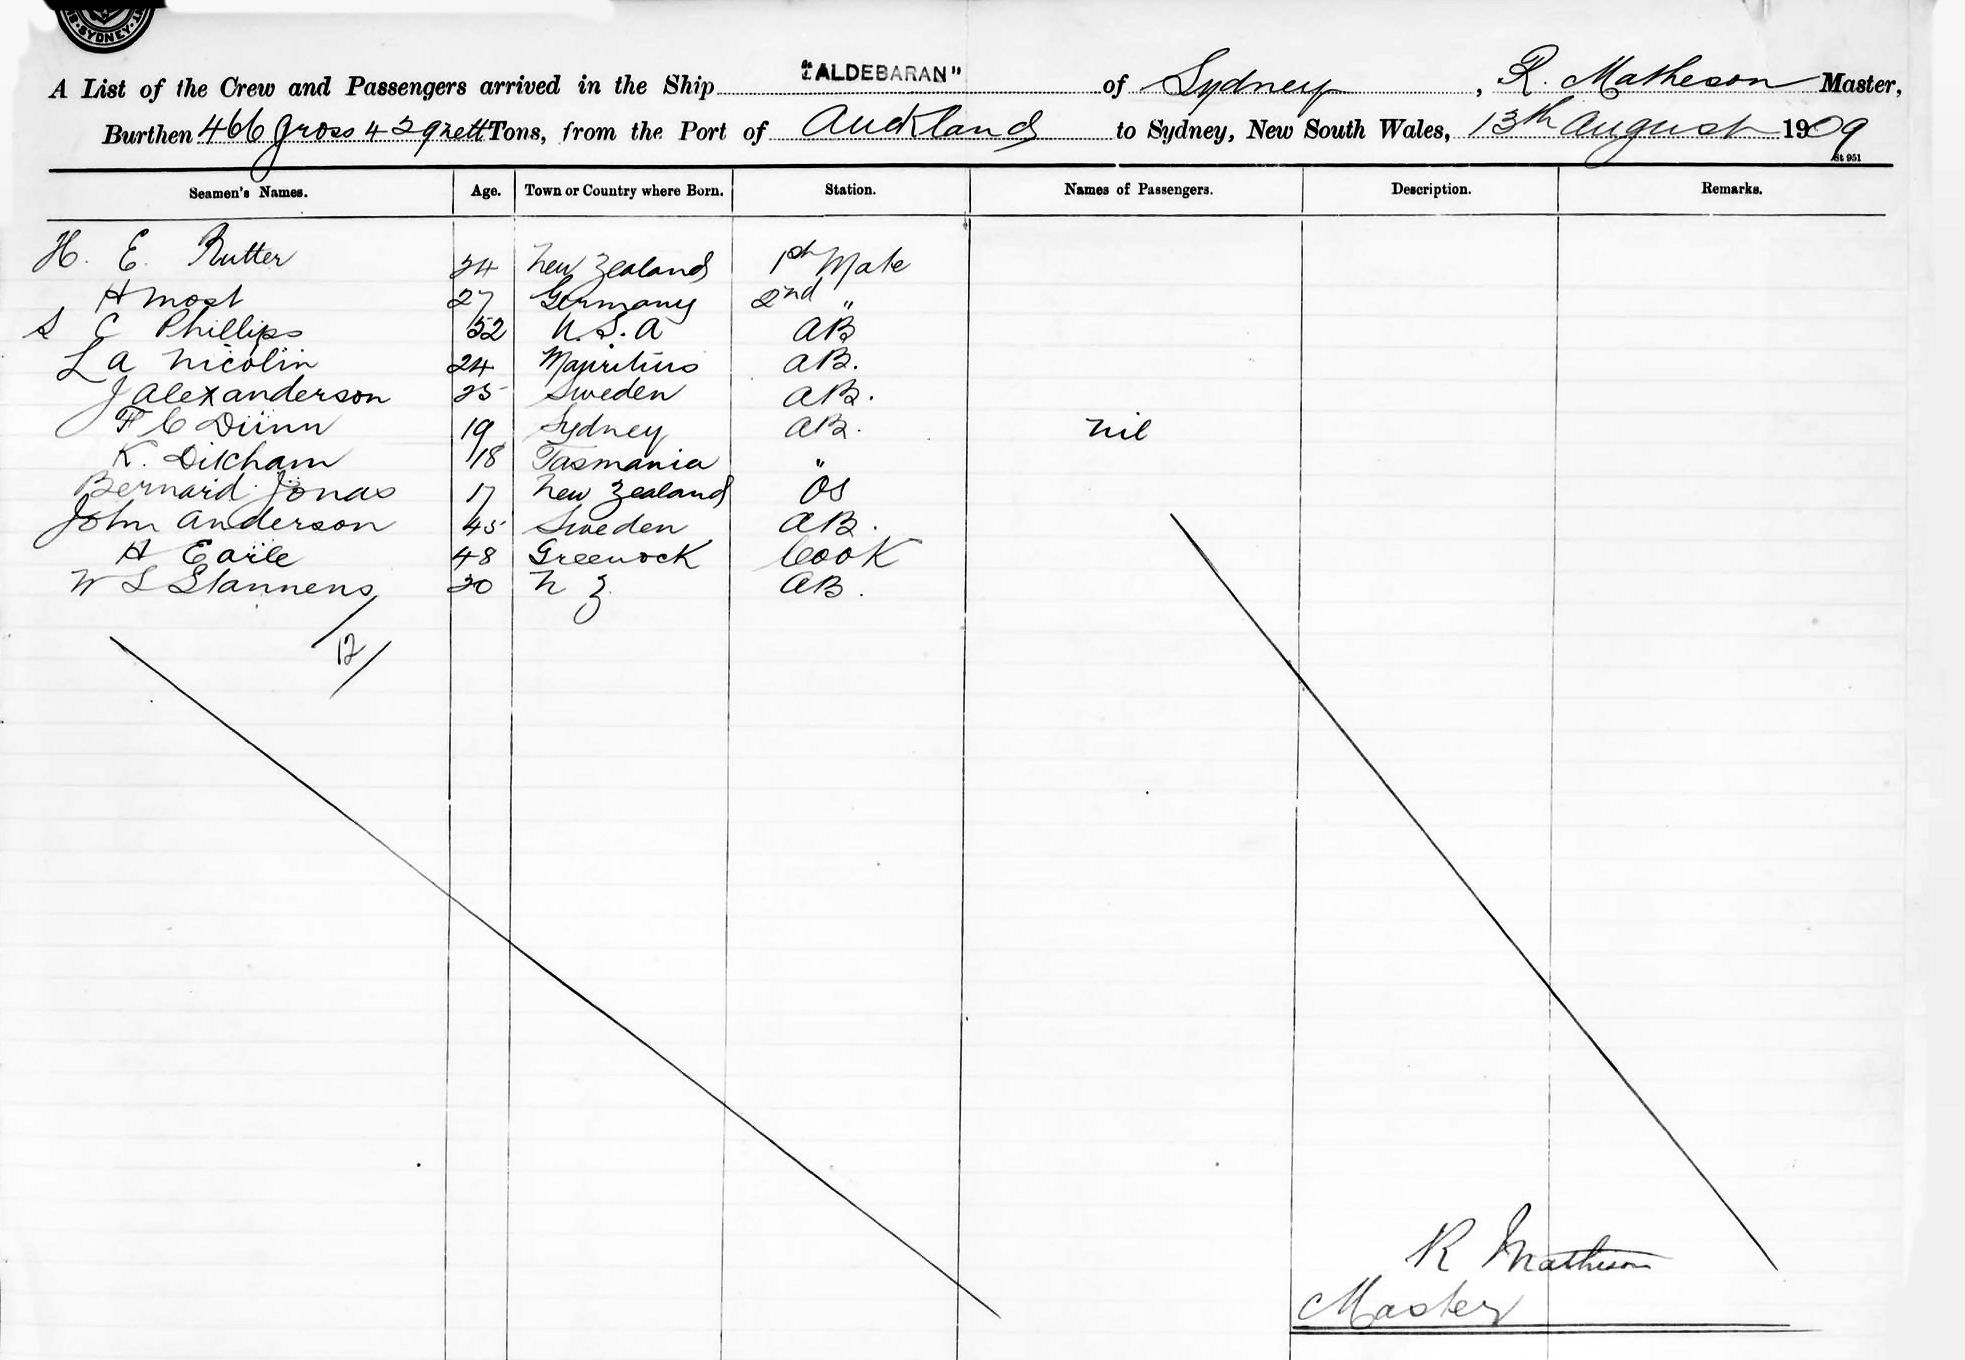 SYDNEY
A List of the Crew and Passengers arrived in the Ship "ALDEBARAN" of Sydney, R. Matheson Master,
Burthen 466 gross 429 nett Tons, from the Port of Auckland to Sydney, New South Wales, 13th August 1909
St 951
Seamen's Names. Age. Town or Country where Born. Station. Names of Passengers. Description. Remarks.
H. E. Rutter 24 New Zealand 1st Mate
H Most 27 Germany 2nd "
S C Phillips 52 U.S.A AB
L A Nicolin 24 Mauritius AB.
J Alexanderson 25 Sweden AB.
F C Dünn 19 Sydney AB. Nil
K. Ditcham 18 Tasmania "
Bernard Jonas 17 New Zealand OS
John Anderson 45 Sweden AB.
H Earle 48 Greenock Cook
W S Stannens 30 N Z AB.
12/
R Matheson
Master